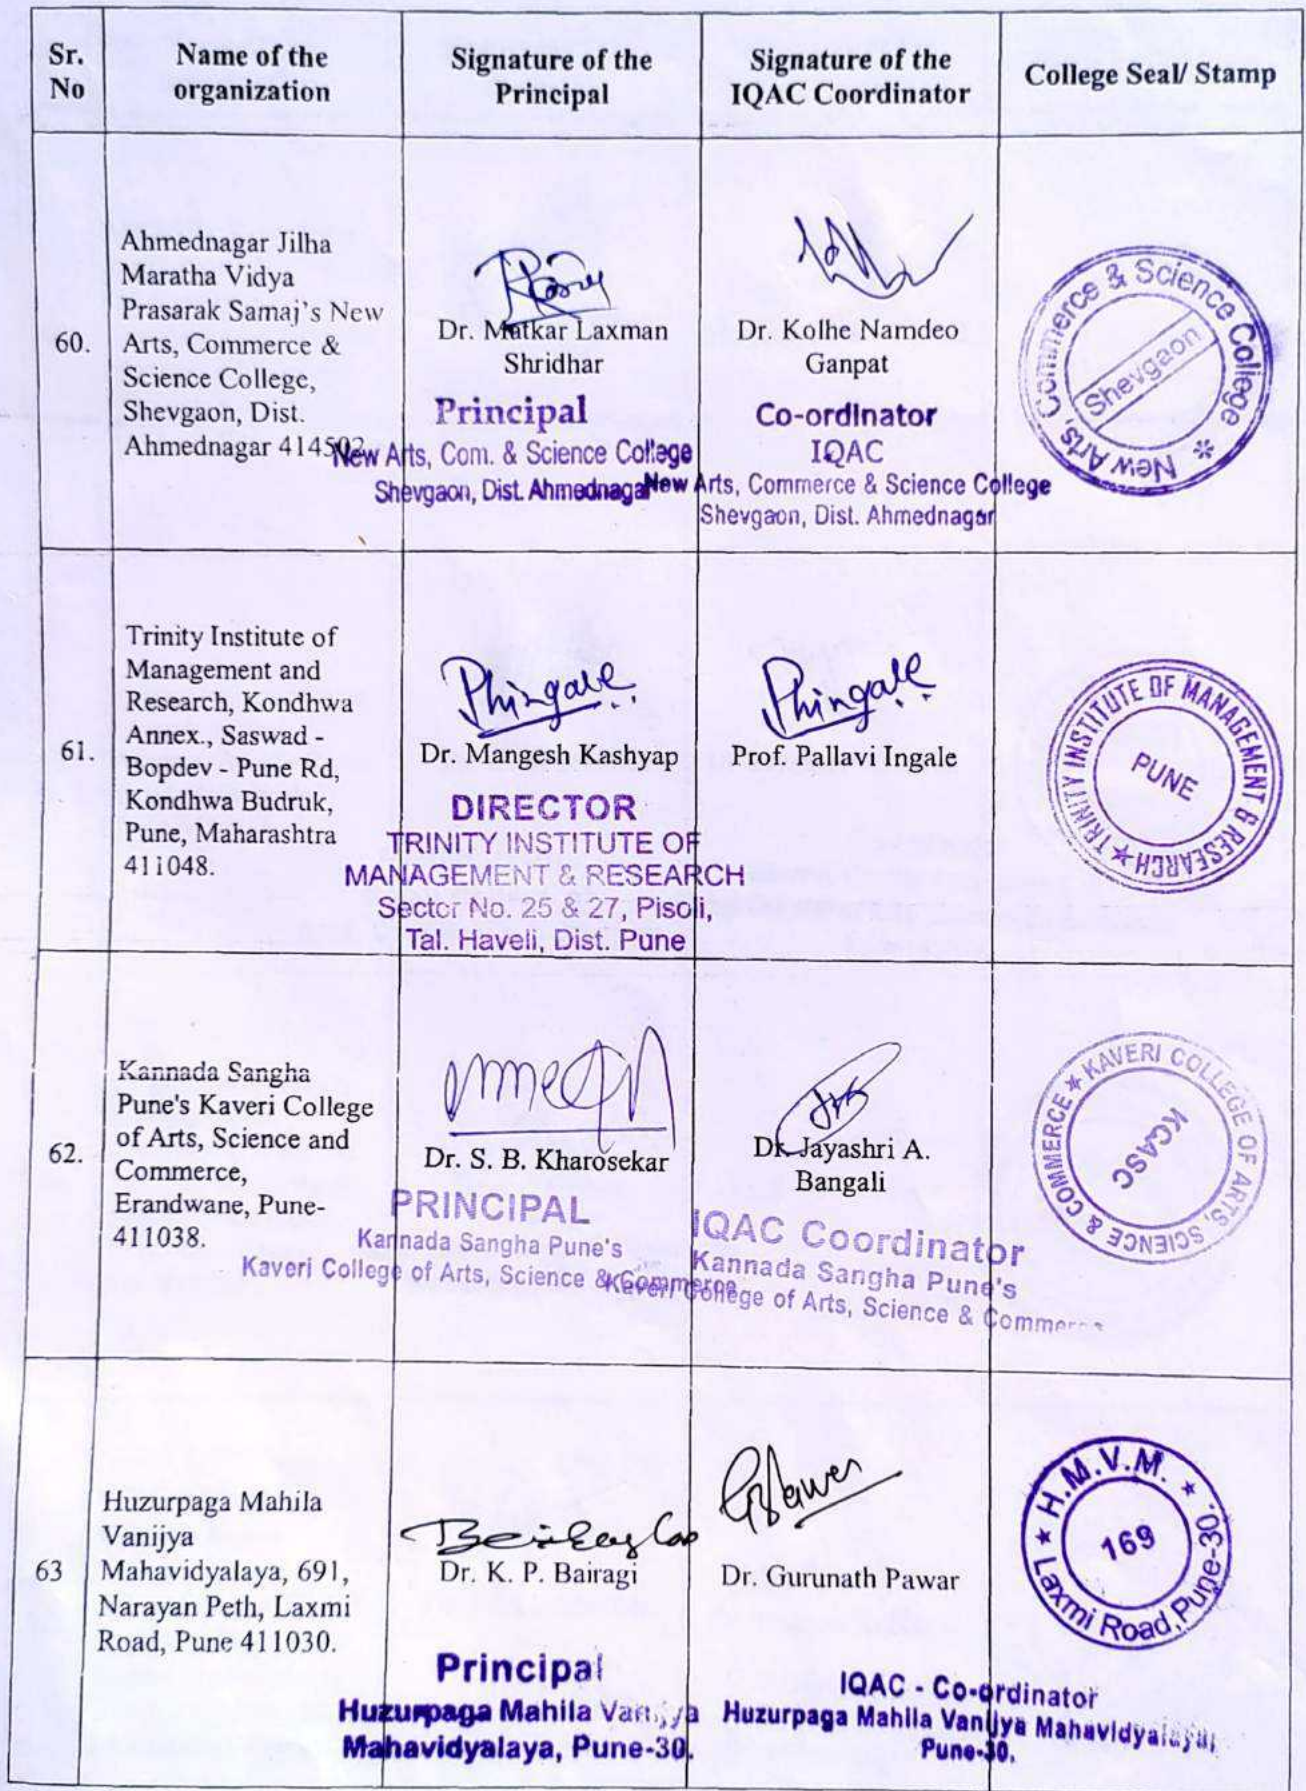 Sr. No
Name of the organization
Signature of the Principal
Signature of the IQAC Coordinator
College Seal/ Stamp
60.
Ahmednagar Jilha
Maratha Vidya
Prasarak Samaj's New
Arts, Commerce &
Science College,
Shevgaon, Dist.
Ahmednagar 414502
Dr. Matkar Laxman
Shridhar
Principal
New Arts, Com. & Science College
Shevgaon, Dist. Ahmednagar
Dr. Kolhe Namdeo
Ganpat
Co-ordinator
IQAC
New Arts, Commerce & Science College
Shevgaon, Dist. Ahmednagar
New Arts, Commerce & Science College *
Shevgaon
61.
Trinity Institute of
Management and
Research, Kondhwa
Annex., Saswad -
Bopdev - Pune Rd,
Kondhwa Budruk,
Pune, Maharashtra
411048.
Phingale
Dr. Mangesh Kashyap
DIRECTOR
TRINITY INSTITUTE OF
MANAGEMENT & RESEARCH
Sector No. 25 & 27, Pisoli,
Tal. Haveli, Dist. Pune
Phingale
Prof. Pallavi Ingale
TRINITY INSTITUTE OF MANAGEMENT & RESEARCH ★
PUNE
62.
Kannada Sangha
Pune's Kaveri College
of Arts, Science and
Commerce,
Erandwane, Pune-
411038.
Dr. S. B. Kharosekar
PRINCIPAL
Kannada Sangha Pune's
Kaveri College of Arts, Science & Commerce
Dr. Jayashri A.
Bangali
IQAC Coordinator
Kannada Sangha Pune's
Kaveri College of Arts, Science & Commerce
★ KAVERI COLLEGE OF ARTS, SCIENCE & COMMERCE
KCASC
63
Huzurpaga Mahila
Vanijya
Mahavidyalaya, 691,
Narayan Peth, Laxmi
Road, Pune 411030.
Dr. K. P. Bairagi
Principal
Huzurpaga Mahila Vanijya
Mahavidyalaya, Pune-30.
GPawar
Dr. Gurunath Pawar
IQAC - Co-ordinator
Huzurpaga Mahila Vanijya Mahavidyalaya,
Pune-30.
★ H.M.V.M. ★
Laxmi Road, Pune-30.
169